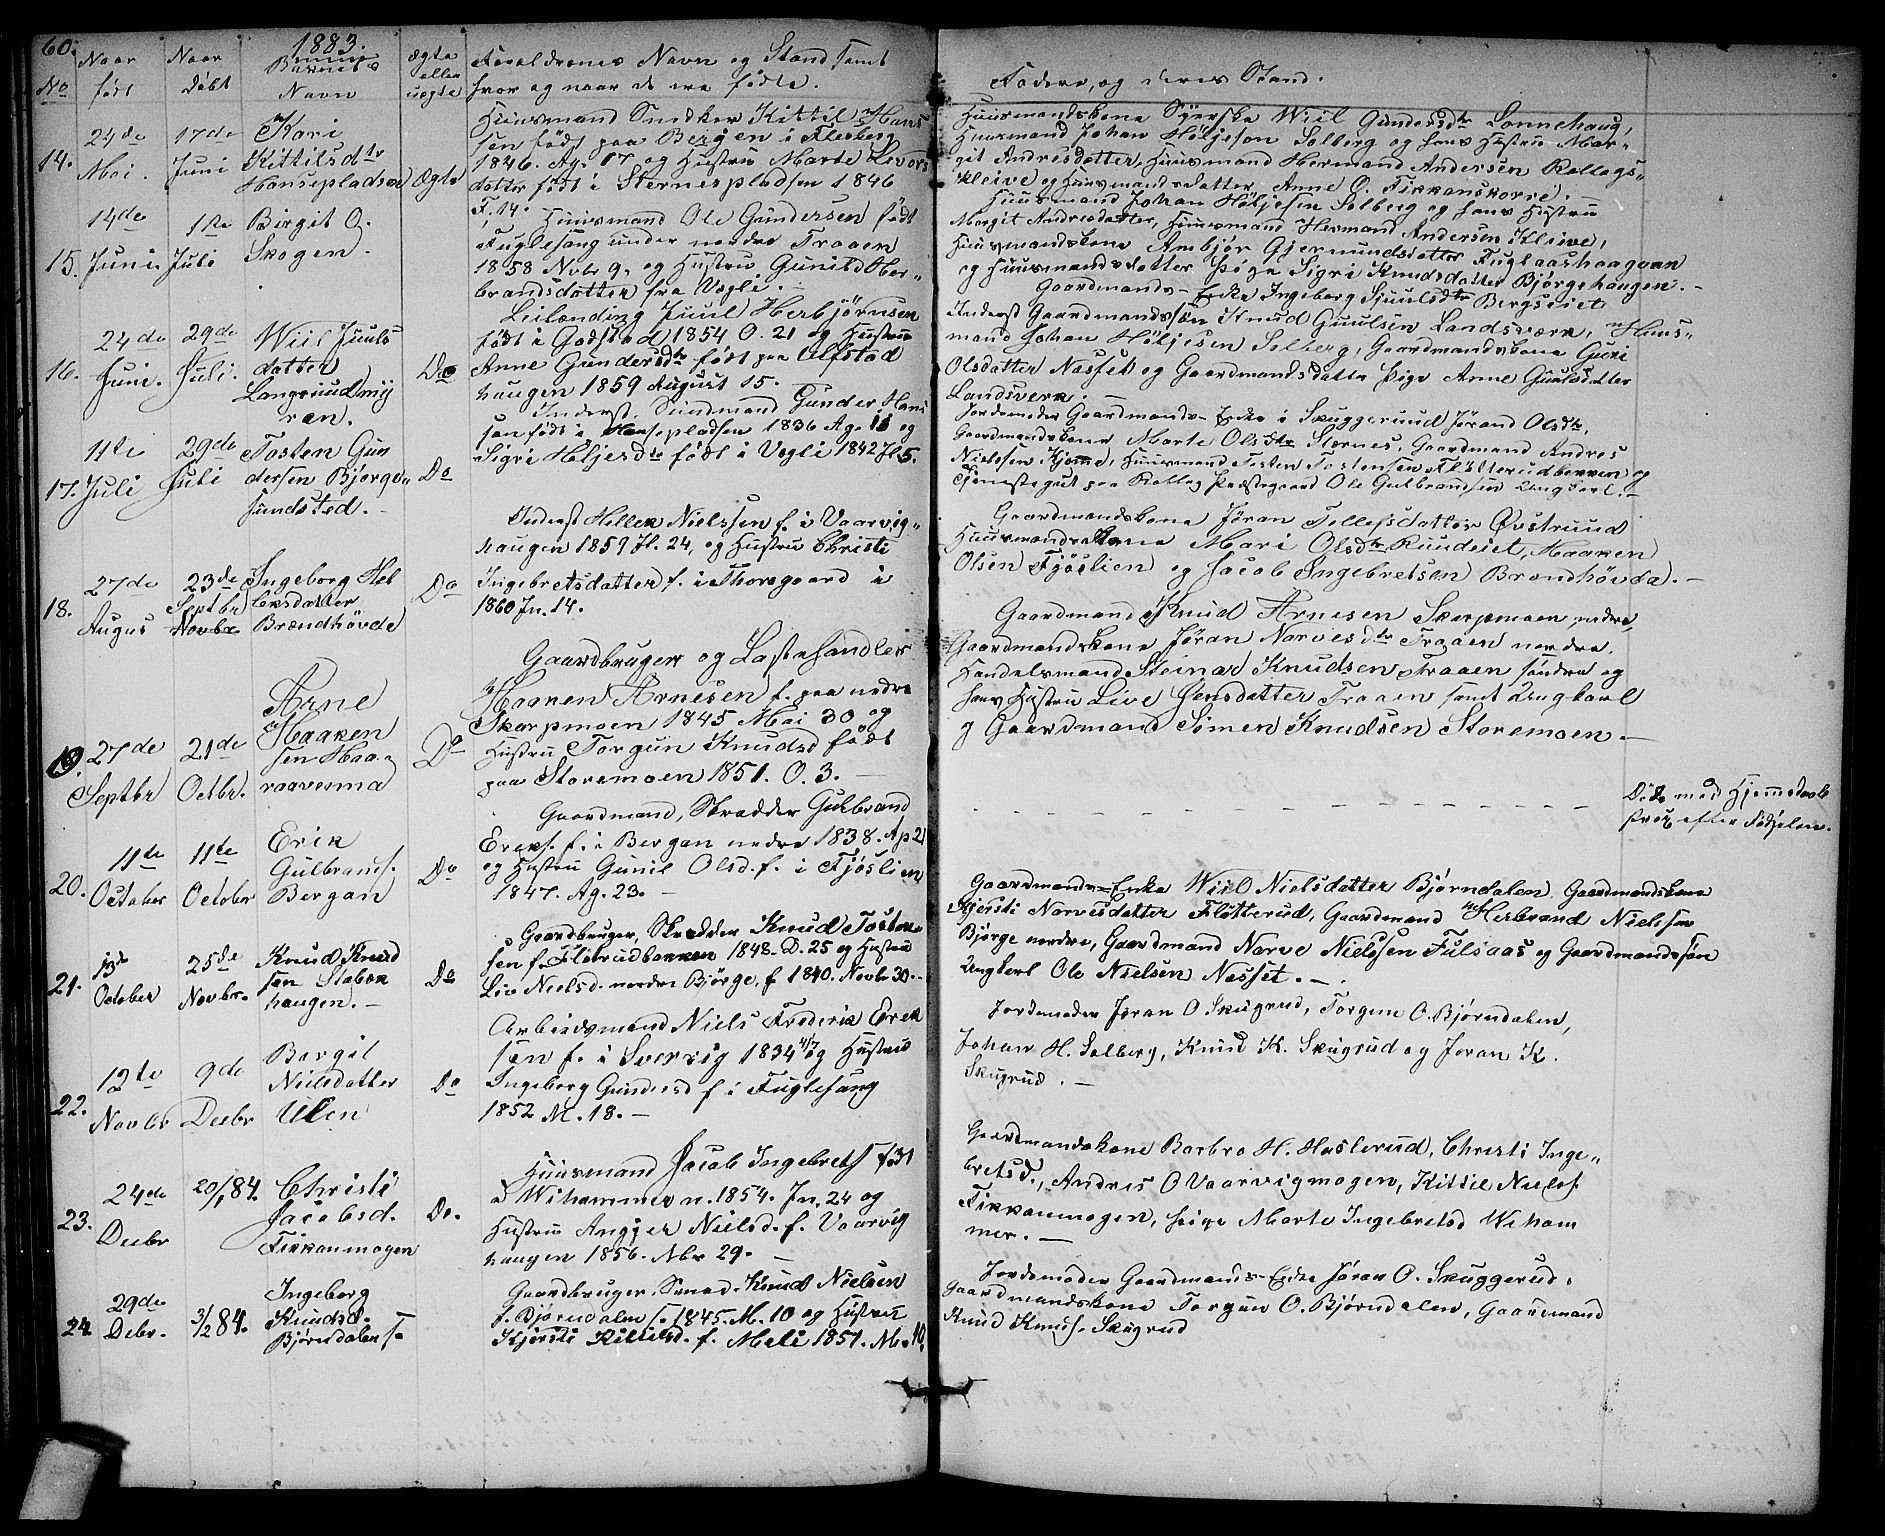 60.
1883.
No
Naar født
Naar Døbt
Barnets Navn
Ægte eller uægte
Forældrenes Navn og Stand samt
hvor og naar de ere fødte.
Faddere, og deres Stand.
14.
24de Mai.
17de Juni
Kari
Kittilsdtr
Hansepladsen
Ægte
Huusmand Snedker Kittil Hans
sen født paa Bergen i Flesberg
1846. Ag. 17 og Hustru Marte Levors
datter født i Sternespladsen 1846
F. 14.
Huusmandskone Syerske Wiil Gundersdtr Sønnehaug,
Huusmand Johan Höljeson Solberg og hans Hustru Mar-
git Andresdatter, Huusmand Hermand Andersen Rollags-
kleive og Huusmandsdatter Anne O. Fikkanskorve.
15.
14de Juni
1ste Juli
Birgit O.
Skogen.
Huusmand Ole Gundersen født
Fuglesang under nordre Traaen
1858 Novbr 9, og Hustru Gunild Her-
brandsdatter fra Vegli.
Huusmand Johan Höljesen Solberg og hans Hustru
Margit Andresdatter, Huusmand Hermand Andersen Kleive,
Huusmandskone Ambjør Gjermundsdatter Fuglaashaagaan
og Huusmandsdatter Pige Sigri Knudsdatter Bjørgehaugen.
16.
24de Juni.
29de Juli.
Wiil Juuls
datter
Langruudmy
ren.
Do
Leilænding Juul Herbjørnsen
født i Godstad 1854 O. 21 og Hustru
Anne Gundersdtr født paa Ulfstad
haugen 1859 August 15.
Gaardmands-Enke Ingeborg Sjuulsdtr Bergseiet
Inderst Gaardmandssøn Knud Guulsen Landsværk, Huus-
mand Johan Höljesen Solberg, Gaardmandskone Guri
Olsdatter Nesset og Gaardmandsdatter Pige Anne Guulsdatter
Landsverk.
17.
11te Juli
29de Juli
Tosten Gun
dersen Bjørge-
sundsted.
Do
Inderst. Sundmand Gunder Hans
sen født i Hansepladsen 1836 Ag. 11 og
Sigri Heljesdtr født i Vegli 1842 Jl 5.
Jordemoder Gaardmands-Enke i Skuggeruud Jørand Olsdtr,
Gaardmandskone Marte Olsdtr Stærnes, Gaardmand Andres
Nielssen Kjøme, Huusmand Tosten Tostensen Fløtterudbekken og
Tjenestegut paa Rollag Præstegaard Ole Gulbrandsen Ungkarl.
18.
27de Augus
23de Septbr
Novbr.
Ingeborg Hel
leksdatter
Brændhövde
Do
Inderst Hellek Nielssen f. i Vaarvig-
haugen 1859 Jl. 24, og Hustru Christi
Ingebretsdatter f. i Thorsgaard i
1860 Jn. 14.
Gaardmandskone Jøran Tollefsdatter Øvstruud
Huusmandskone Mari Olsdtr Ruudeiet, Haaken
Olsen Fjøslien og Jacob Ingebretsen Brændhövda.
19.
27de Septbr
21de Octbr.
Arne
Haaken
sen Haa-
raavemma
Do
Gaardbruger og Lastehandler
Haaken Arnesen f. paa nedre
Skarpmoen 1845 Mai 30 og
Hustru Torgun Knudsd født
paa Storemoen 1851. O. 3.
Gaardmand Knud Arnesen Skarpmoen nedre,
Gaardmandskone Jøran Narvesdtr Traaen nordre,
Handelsmand Steinar Knudsen Traaen søndre og
hans Hustru Live Jensdatter Traaen samt Ungkarl
g Gaardmand Simen Knudsen Storemoen.
20.
11te October
11te October
Erik
Gulbrands.
Bergan
Do
Gaardmand, Skrædder Gulbrand
Ereks. f. i Bergan nedre 1838. Ap 21
og Hustru Gunil Olsd. f. i Fjøslien
1847. Ag. 23.
Døde med Hjemedaab
strax efter Fødselen.
21.
October
25de Novbr.
Knud Knud
sen Stabæk
haugen.
Do
Gaardbruger, Skrædder Knud Tosten-
sen f. Fløtrudbakken 1848. D. 25 og Hustru
Liv Nielsd. nordre Björge, f 1840. Novbr 30.
Gaardmands-Enke Wiil Nielsdatter Bjørndalen Gaardmandskone
Kjersti Narvesdatter Fløtterud, Gaardmand Herbrand Nielssen
Bjørge nordre, Gaardmand Narve Nielssen Fulsaas og Gaardmandssøn
Ungkarl Ole Nielsen Nesset.
22.
12te Novbr
9de Decbr
Bergit
Nielsdatter
Ulen
Do
Arbeidsmand Niels Frederik Erek
sen f. i Svervig 1834 11/7 og Hustru
Ingeborg Gundersd f i Fuglesang
1852 M. 18.
Jordemoder Jøran O Skugrud, Torgun O. Bjørndalen,
Johan H. Solberg, Knud K. Skugrud og Jøran K.
Skugrud.
23.
24de Decbr
20/1 84.
Christi
Jacobsd.
Fikkanmogen
Do.
Huusmand Jacob Ingebrets født
a Wihammeren. 1854. Jn. 24 og
Hustru Angjer Nielsd. f. Vaarvig
haugen 1856. Nbr 29.
Gaardmandskone Barbro H. Haslerud, Christi Inge-
bretsd., Andres O Vaarvigmogen, Kittil Nielss.
Fikkanmogen, Pige Marte Ingebretsd Weham
mer.
24.
29de Decbr.
3/2 84.
Ingeborg
Knudsd.
Bjørndalen
Gaardbruger, Smed Knud Nielsen
f. Bjørndalen 1845. M. 10 og Hustru
Kjersti Kittilsd. f. Meli 1851. M. 10.
Jordemoder Gaardmands-Enke Jøran O. Skuggerud.
Gaardmandskone Torgun O. Bjørndalen, Gaardmand
Knud Knuds. Skugrud